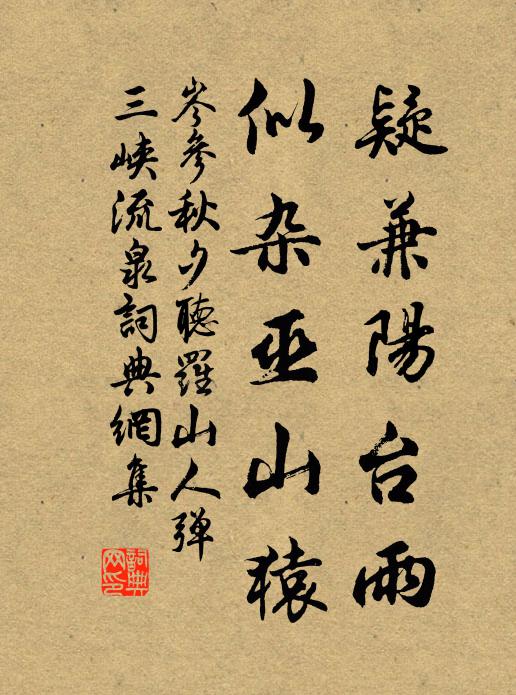 疑兼陽台雨
似杂巫山猿
岑參秋夕聽羅山人弾
三峽流泉詞典網集
詞典
网印